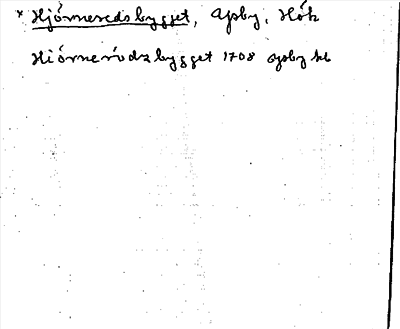 * Hjörneredsbygget, Ysby, Hök
Hiörnerödzbygget 1708 ysby kb